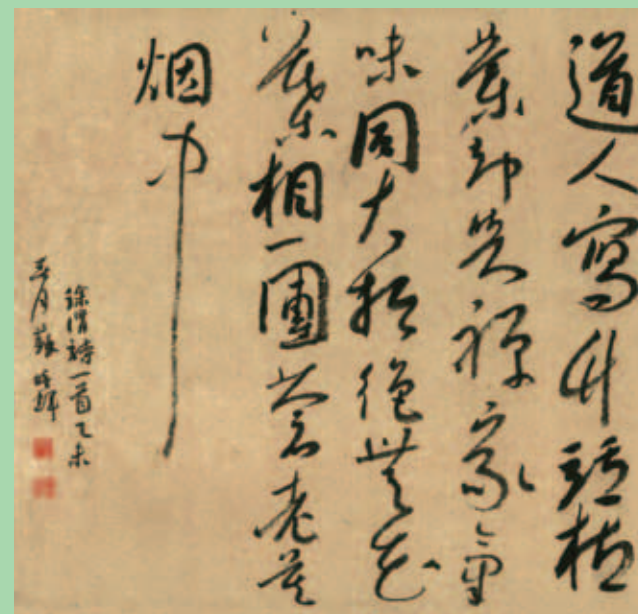 道人寫竹並枯
叢却與禪家氣
味同大抵絕無花
葉相一團蒼老莫
烟中
徐渭詩一首乙未
月